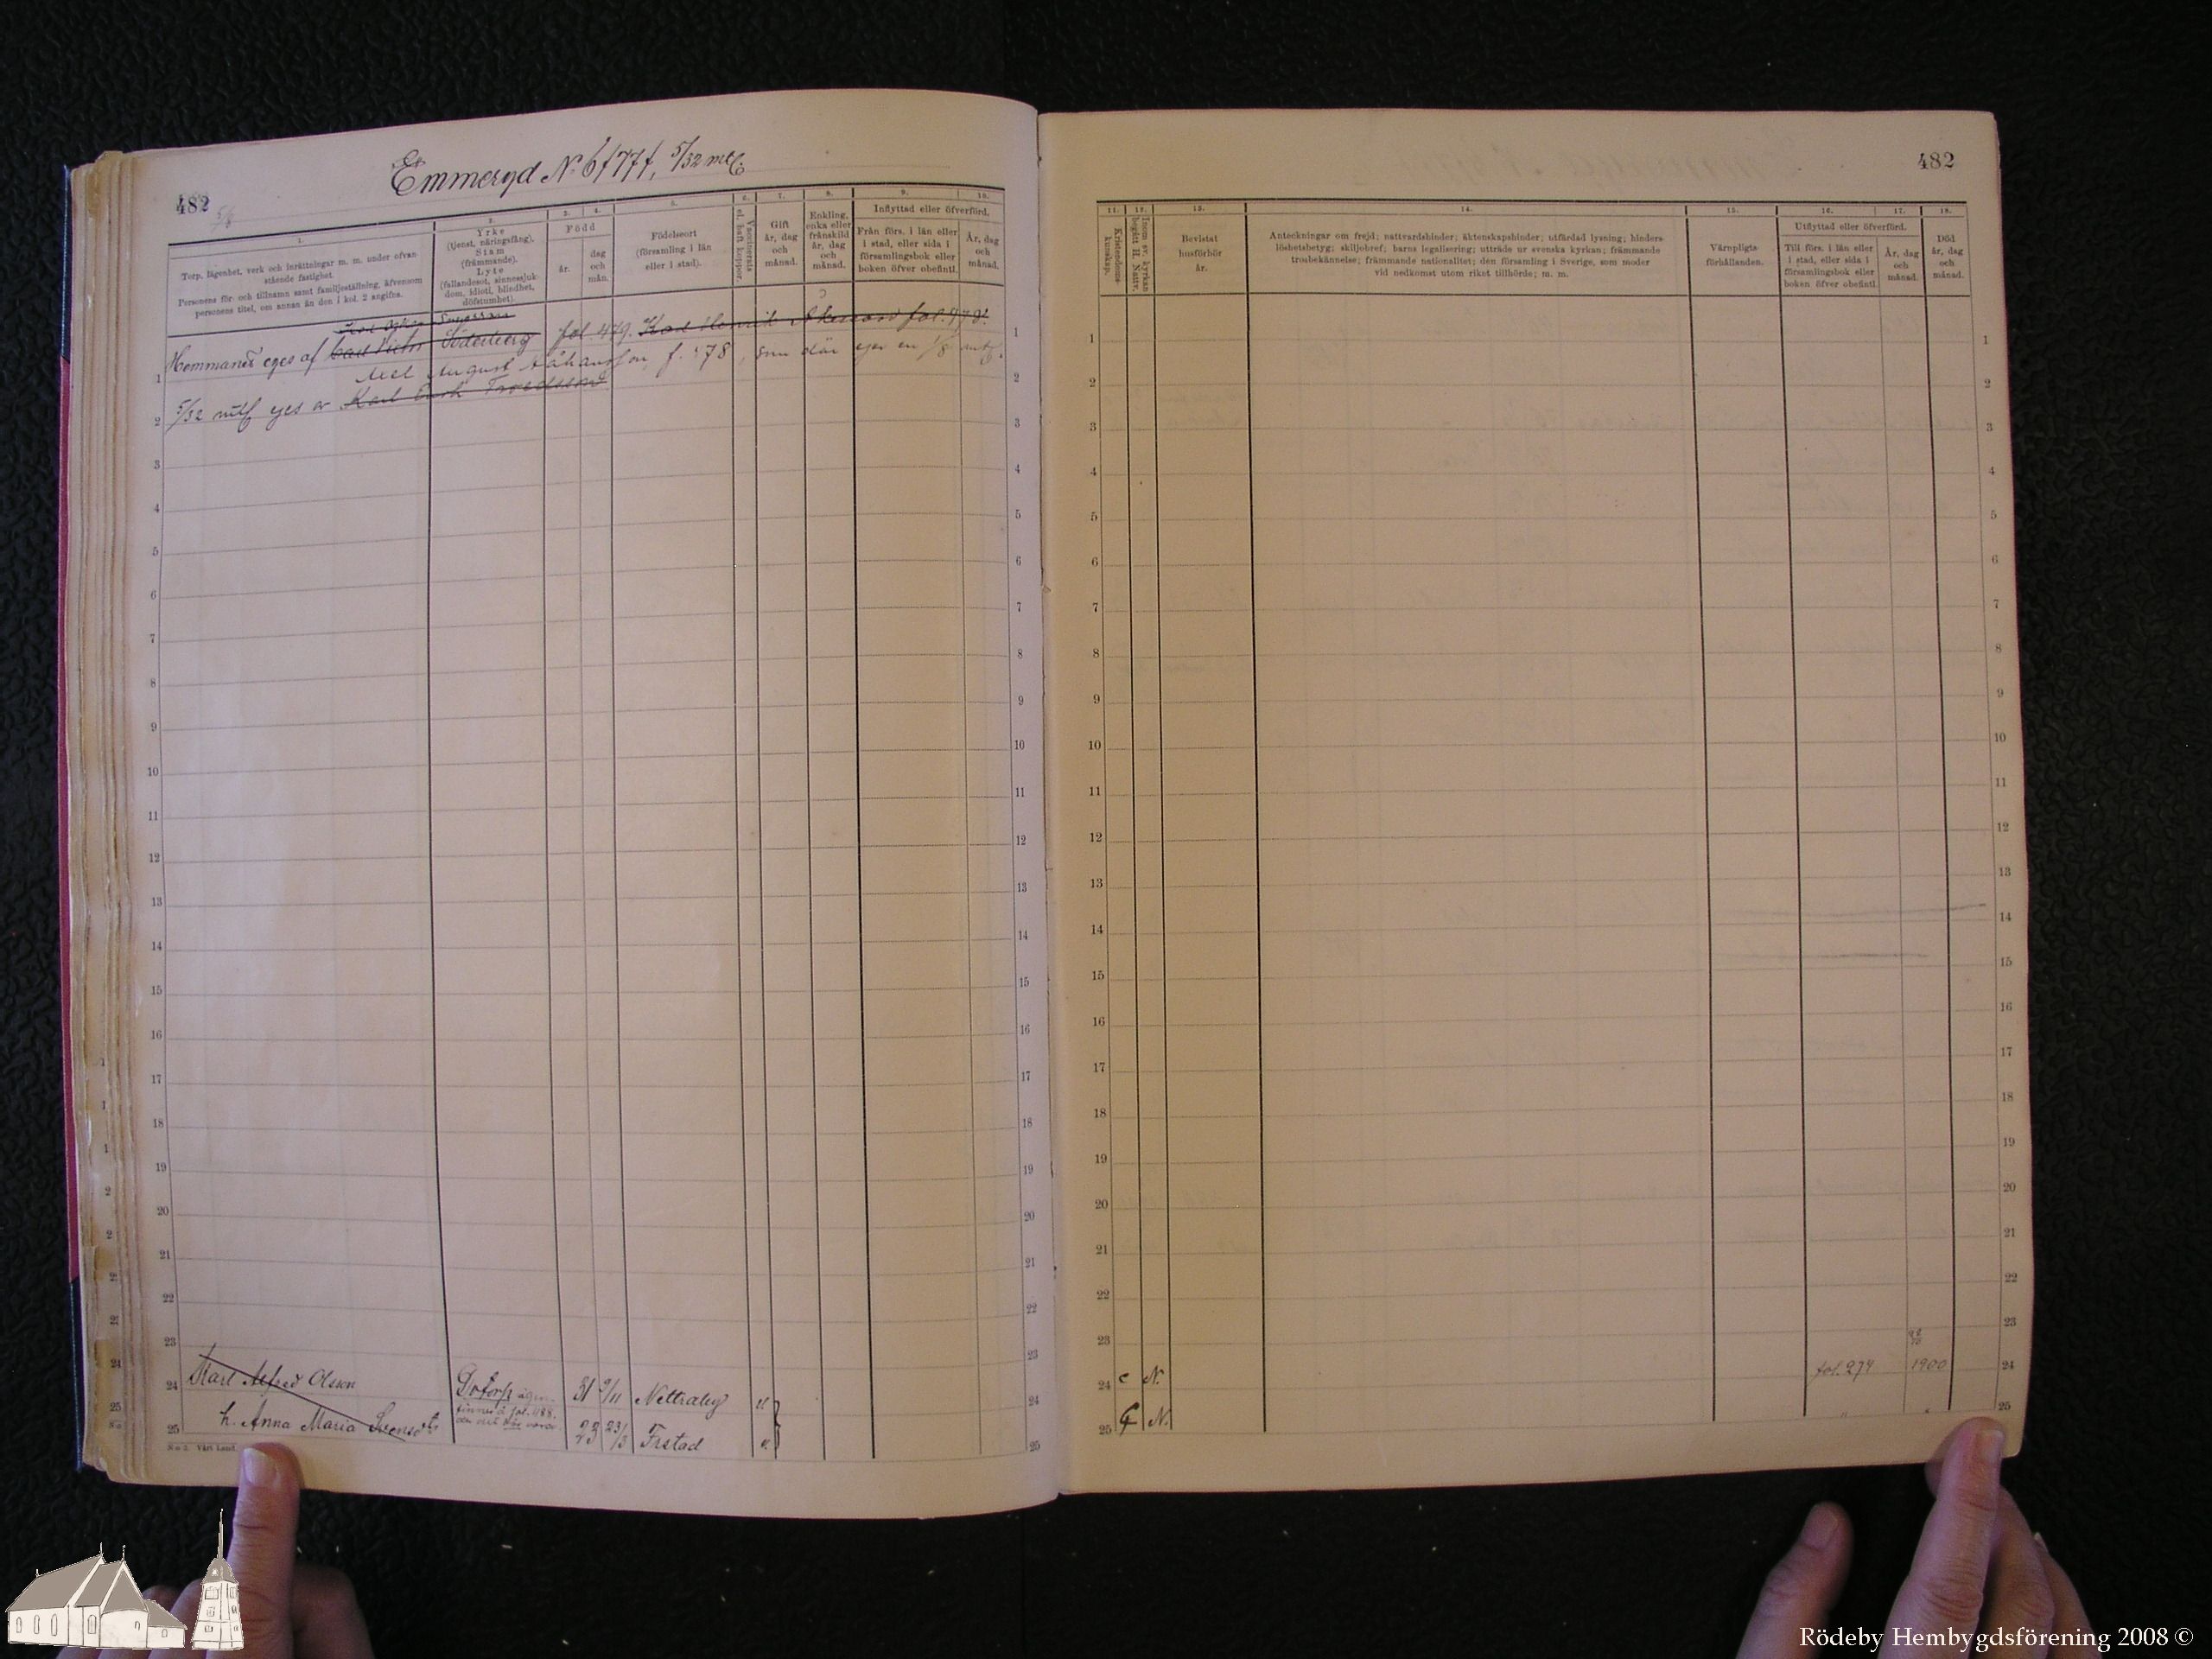 Emmeryd № 6f77f, 5/32 mtl.
482
1.
2.
3.
4.
5.
6.
7.
8.
9.
10.
Torp, lägenhet, verk och inrättningar m. m. under ofvan-
stående fastighet.
Personens för- och tillnamn samt familjeställning, äfvensom
personens titel, om annan än den i kol. 2 angifna.
Yrke
(tjenst, näringsfång).
Stam
(främmande).
Lyte
(fallandesot, sinnessjuk-
dom, idioti, blindhet,
döfstumhet).
Född
år.
dag
och
mån.
Födelseort
(församling i län
eller i stad).
Vaccinerats
el. haft koppor.
Gift
år, dag
och
månad.
Enkling,
enka eller
frånskild
år, dag
och
månad.
Inflyttad eller öfverförd.
Från förs. i län eller
i stad, eller sida i
församlingsbok eller
boken öfver obefintl.
År, dag
och
månad.
Hemmanet eges af Söderberg fol. 479. Karl Henrik fol. 478.
Axel August f. 78, som där eger en 1/8 mtl.
5/32 mtl eges av Karl
1
2
3
4
5
6
7
8
9
10
11
12
13
14
15
16
17
18
19
20
21
22
23
24 Karl Alfred Olsson Gotorp 31 9/11 Nettraby v.
finnes å fol. 488.
25 h. Anna Maria Svensdr 23 23/3 Frstad v.
No 2. Vårt Land.
482
11.
12.
13.
14.
15.
16.
17.
18.
Kristendoms-
kunskap.
Inom sv. kyrkan
begått H. Nattv.
Bevistat
husförhör
år.
Anteckningar om frejd; nattvardshinder; äktenskapshinder; utfärdad lysning; hinders-
löshetsbetyg; skiljobref; barns legalisering; utträde ur svenska kyrkan; främmande
trosbekännelse; främmande nationalitet; den församling i Sverige, som moder
vid nedkomst utom riket tillhörde; m. m.
Värnpligts-
förhållanden.
Utflyttad eller öfverförd.
Till förs. i län eller
i stad, eller sida i
församlingsbok eller
boken öfver obefintl.
År, dag
och
månad.
Död
år, dag
och
månad.
1
2
3
4
5
6
7
8
9
10
11
12
13
14
15
16
17
18
19
20
21
22
23
24 c N. fol. 274 1900
25 N.
Rödeby Hembygdsförening 2008 ©